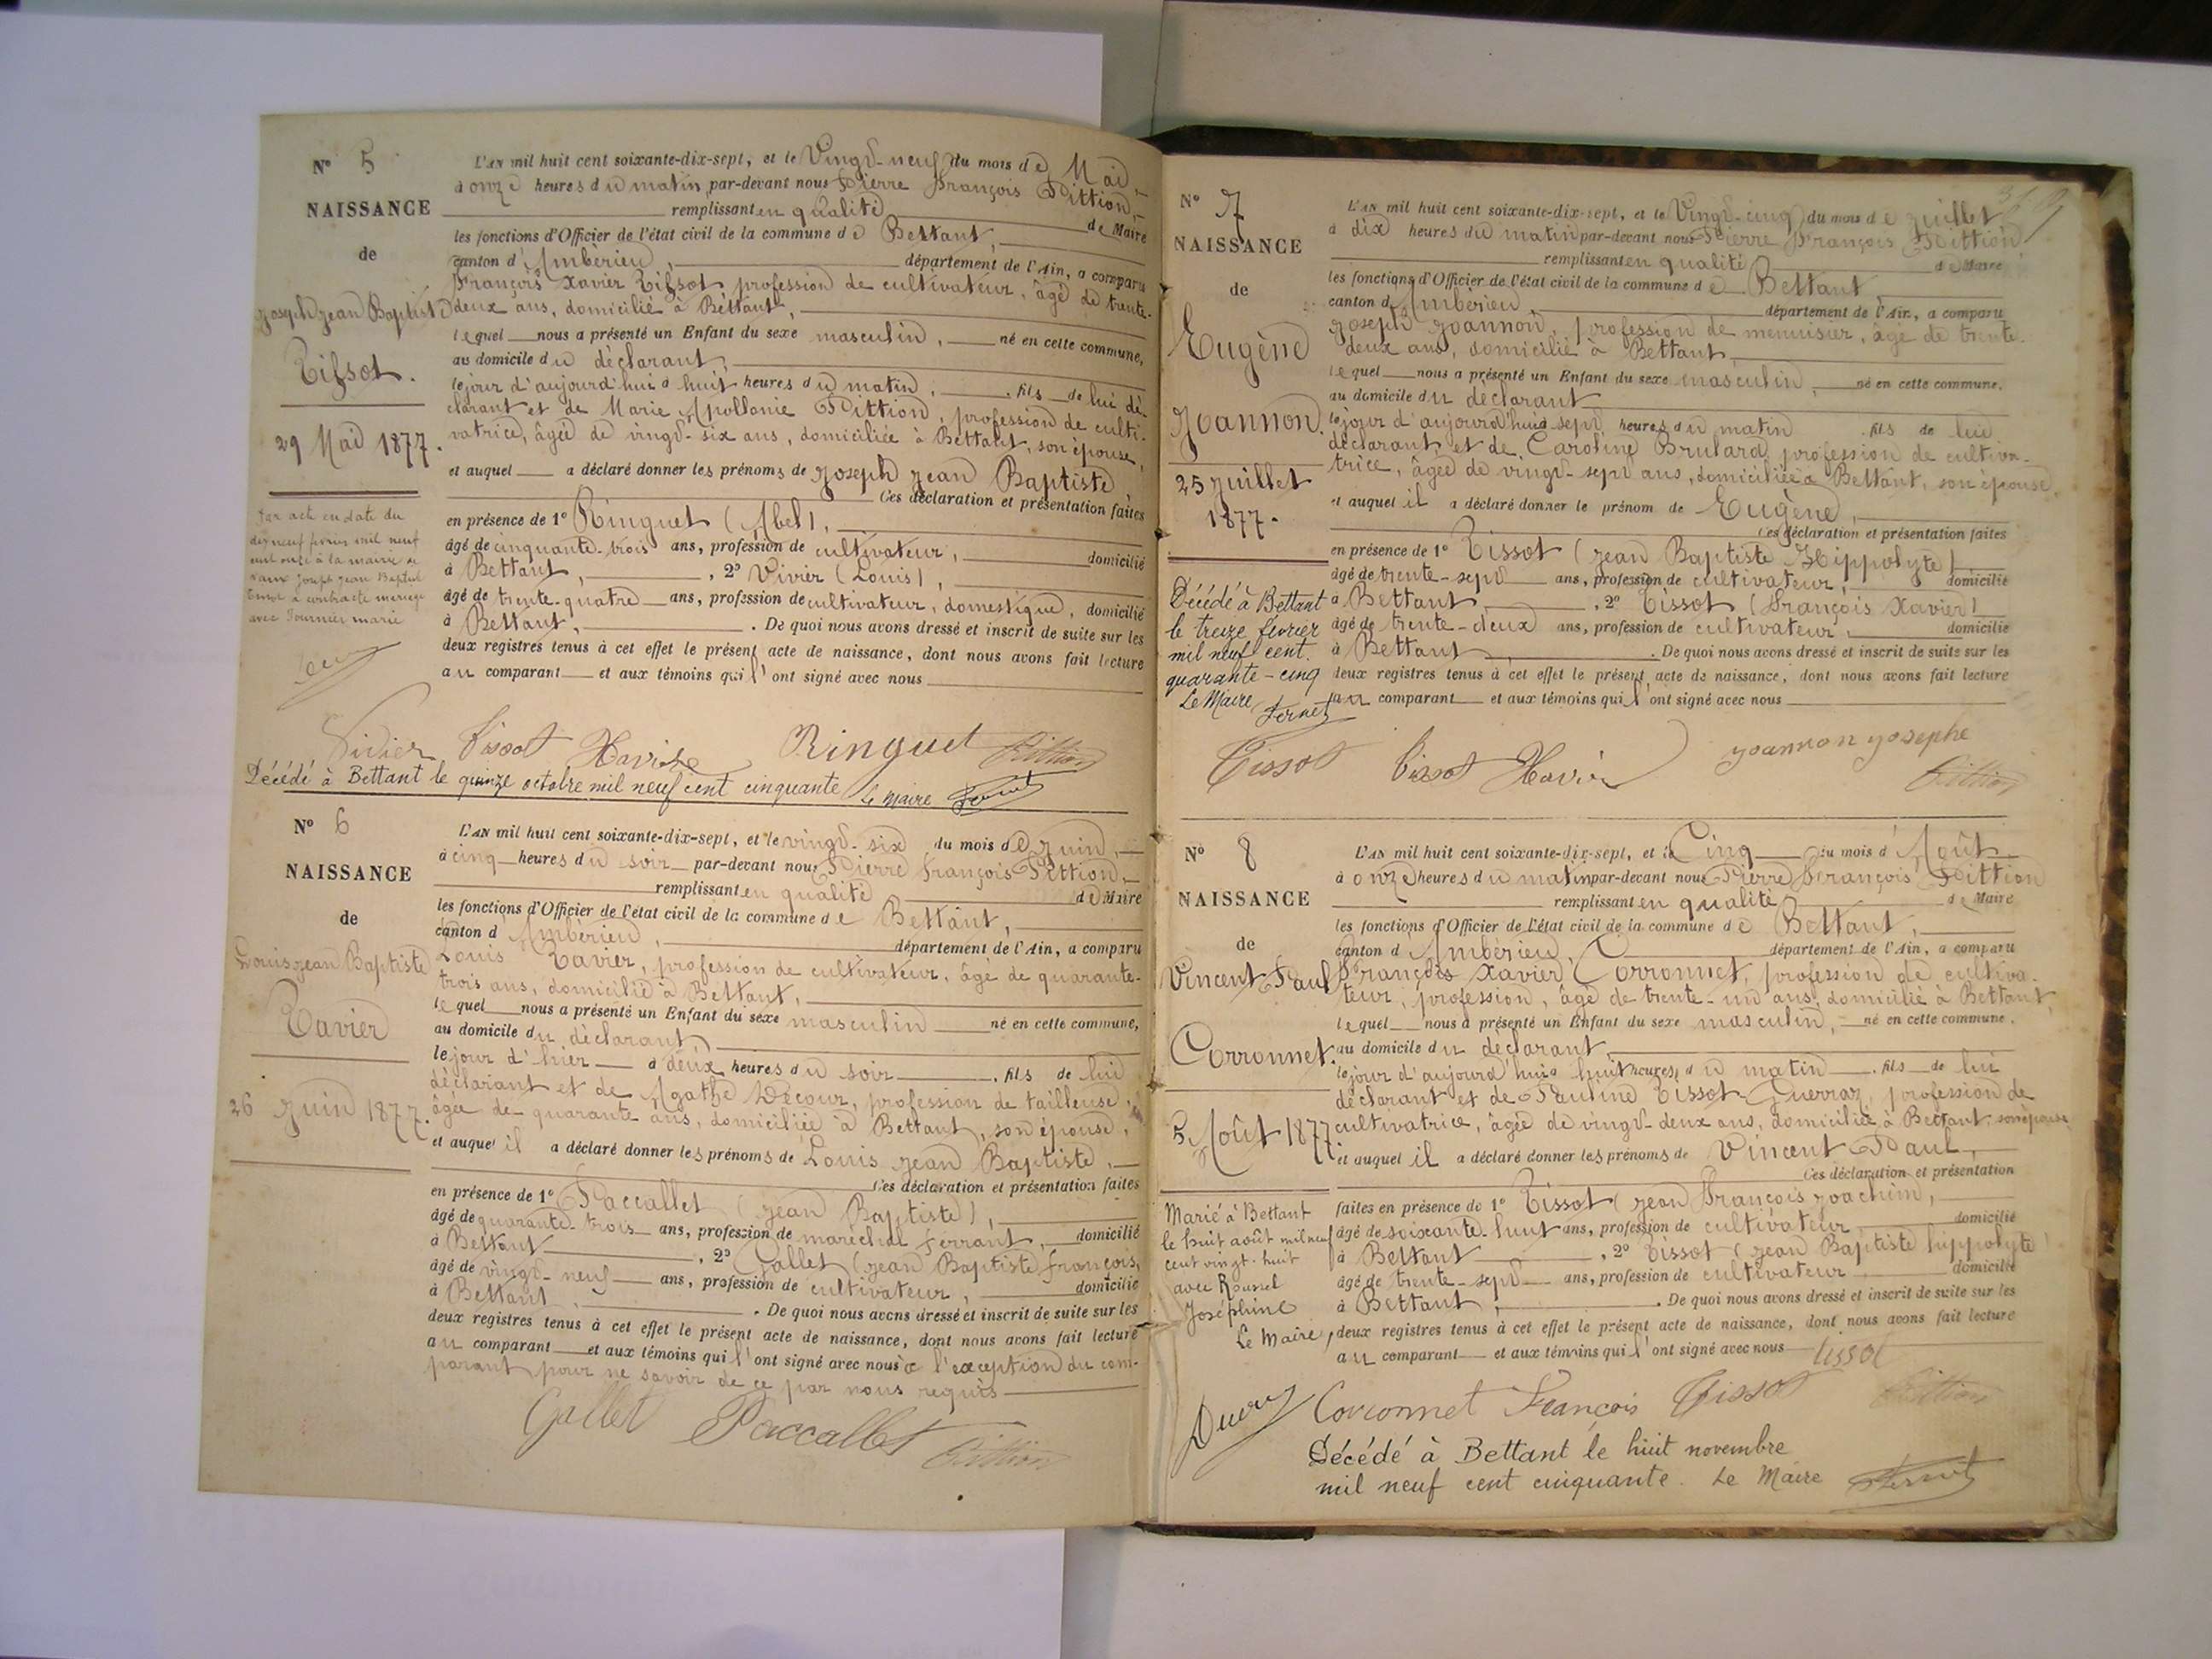 N° 5
NAISSANCE
de
Joseph Jean Baptiste
Tissot.
29 Mai 1877.
Par acte en date du
dix neuf février mil neuf
cent onze à la mairie de
Vaux Joseph Jean Baptiste
Tissot a contracté mariage
avec Tournier marie
L'AN mil huit cent soixante-dix-sept, et le Vingt-neuf du mois de Mai,
à onze heures du matin, par-devant nous Pierre François Pittion,
remplissant en qualité de Maire
les fonctions d'Officier de l'état civil de la commune de Bettant,
canton d'Ambérieu, département de l'Ain, a comparu
François Xavier Tissot, profession de cultivateur, âgé de trente-
deux ans, domicilié à Bettant,
lequel nous a présenté un Enfant du sexe masculin, né en cette commune,
au domicile du déclarant,
le jour d'aujourd'hui à huit heures du matin, fils de lui dé-
clarant et de Marie Apollonie Pittion, profession de culti-
vatrice, âgée de vingt-six ans, domiciliée à Bettant, son épouse,
et auquel a déclaré donner les prénoms de Joseph Jean Baptiste
Ces déclaration et présentation faites
en présence de 1° Ringuet (Abel),
âgé de cinquante-trois ans, profession de cultivateur, domicilié
à Bettant, , 2° Vivier (Louis),
âgé de trente-quatre ans, profession de cultivateur, domestique, domicilié
à Bettant, . De quoi nous avons dressé et inscrit de suite sur les
deux registres tenus à cet effet le présent acte de naissance, dont nous avons fait lecture
au comparant et aux témoins qui l'ont signé avec nous
Vivier Tissot Xavier Ringuet Pittion
Décédé à Bettant le quinze octobre mil neuf cent cinquante Le Maire
N° 6
NAISSANCE
de
Louis Jean Baptiste
Tavier
26 Juin 1877.
L'AN mil huit cent soixante-dix-sept, et le vingt-six du mois de Juin,
à cinq heures du soir par-devant nous Pierre François Pittion,
remplissant en qualité de Maire
les fonctions d'Officier de l'état civil de la commune de Bettant,
canton d'Ambérieu, département de l'Ain, a comparu
Louis Tavier, profession de cultivateur, âgé de quarante-
trois ans, domicilié à Bettant,
lequel nous a présenté un Enfant du sexe masculin né en cette commune,
au domicile du déclarant,
le jour d'hier à deux heures du soir . fils de lui
déclarant et de Agathe Décour, profession de tailleuse,
âgée de quarante ans, domiciliée à Bettant, son épouse,
et auquel il a déclaré donner les prénoms de Louis Jean Baptiste,
Ces déclaration et présentation faites
en présence de 1° Paccallet (Jean Baptiste),
âgé de quarante-trois ans, profession de maréchal ferrant, domicilié
à Bettant , 2° Gallet (Jean Baptiste François,
âgé de vingt-neuf ans, profession de cultivateur, domicilié
à Bettant, . De quoi nous avons dressé et inscrit de suite sur les
deux registres tenus à cet effet le présent acte de naissance, dont nous avons fait lecture
au comparant et aux témoins qui l'ont signé avec nous à l'exception du com-
parant pour ne savoir de ce par nous requis
Gallet Paccallet Pittion
N° 7
NAISSANCE
de
Eugène
Joannon.
25 Juillet
1877.
Décédé à Bettant
le treize février
mil neuf cent
quarante-cinq
Le Maire
L'AN mil huit cent soixante-dix-sept, et le Vingt-cinq du mois de Juillet
à dix heures du matin par-devant nous Pierre François Pittion
remplissant en qualité de Maire
les fonctions d'Officier de l'état civil de la commune de Bettant
canton d'Ambérieu département de l'Ain, a comparu
Joseph Joannon, profession de menuisier, âgé de trente-
deux ans, domicilié à Bettant
lequel nous a présenté un Enfant du sexe masculin, né en cette commune,
au domicile du déclarant
le jour d'aujourd'hui à sept heures du matin fils de lui
déclarant et de Caroline Brulard profession de cultiva-
trice, âgée de vingt-sept ans, domiciliée à Bettant, son épouse,
et auquel il a déclaré donner le prénom de Eugène,
Ces déclaration et présentation faites
en présence de 1° Tissot (Jean Baptiste Hippolyte)
âgé de trente-sept ans, profession de cultivateur, domicilié
à Bettant, , 2° Tissot (François Xavier)
âgé de trente-deux ans, profession de cultivateur, domicilié
à Bettant . De quoi nous avons dressé et inscrit de suite sur les
deux registres tenus à cet effet le présent acte de naissance, dont nous avons fait lecture
au comparant et aux témoins qui l'ont signé avec nous
Tissot Tissot Xavier Joannon Josephe
Pittion
N° 8
NAISSANCE
de
Vincent Paul
Corronnet.
5 Août 1877
Marié à Bettant
le huit août mil neuf
cent vingt-huit
avec Roussel
Joséphine
Le Maire,
L'AN mil huit cent soixante-dix-sept, et le Cinq du mois d'Août
à onze heures du matin par-devant nous Pierre François Pittion
remplissant en qualité de Maire
les fonctions d'Officier de l'état civil de la commune de Bettant,
canton d'Ambérieu, département de l'Ain, a comparu
François Xavier Corronnet, profession de cultiva-
teur, profession, âgé de trente-un ans, domicilié à Bettant,
lequel nous a présenté un Enfant du sexe masculin, né en cette commune,
au domicile du déclarant,
le jour d'aujourd'hui à huit heures du matin . fils de lui
déclarant et de Pauline Tissot-Guerraz, profession de
cultivatrice, âgée de vingt-deux ans, domiciliée à Bettant, son épouse
et auquel il a déclaré donner les prénoms de Vincent Paul,
Ces déclaration et présentation
faites en présence de 1° Tissot (Jean François Joachim),
âgé de soixante-huit ans, profession de cultivateur, domicilié
à Bettant , 2° Tissot (Jean Baptiste hippolyte)
âgé de trente-sept ans, profession de cultivateur domicilié
à Bettant, . De quoi nous avons dressé et inscrit de suite sur les
deux registres tenus à cet effet le présent acte de naissance, dont nous avons fait lecture
au comparant et aux témoins qui l'ont signé avec nous Tissot
Corronnet François Tissot Pittion
Décédé à Bettant le huit novembre
mil neuf cent cinquante. Le Maire